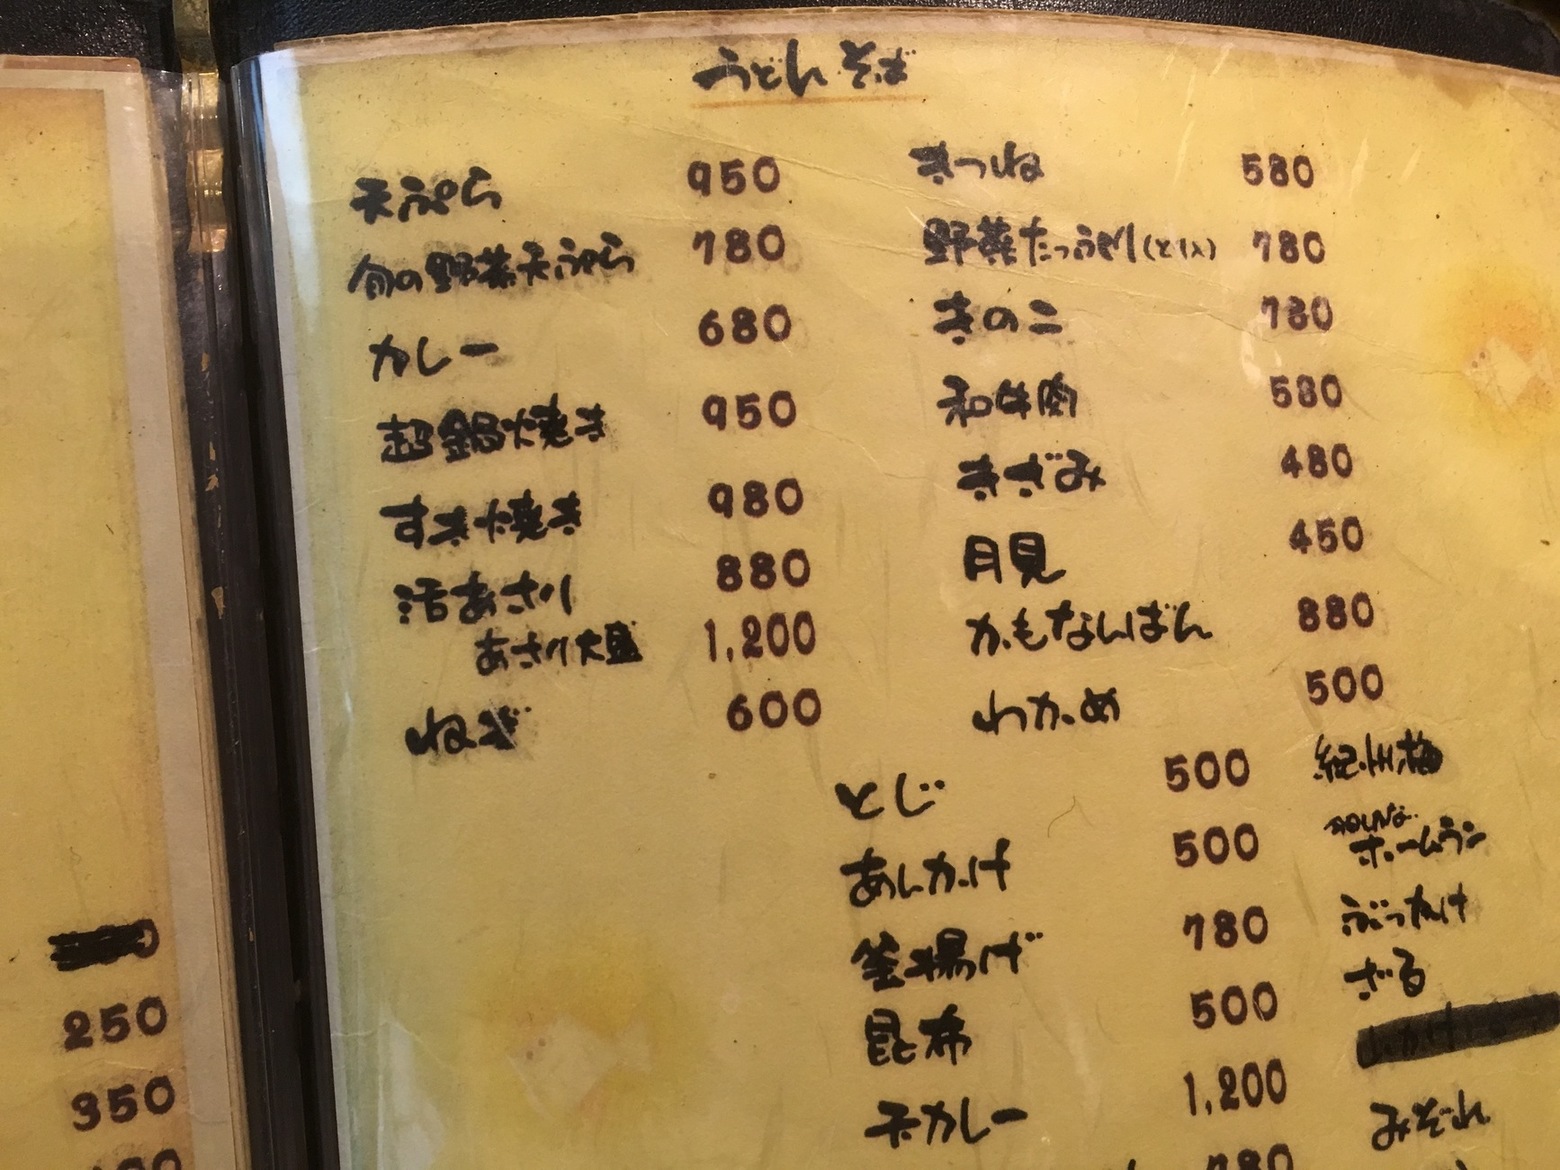 うどん そば
天ぷら 950
旬の野菜天ぷら 780
カレー 680
超鍋焼き 950
すき焼き 980
活あさり 880
あさり大盛 1,200
ねぎ 600
きつね 580
野菜たっぷり(とり入) 780
きのこ 780
和牛肉 580
きざみ 480
月見 450
かもなんばん 880
わかめ 500
とじ 500
あんかけ 500
釜揚げ 780
昆布 500
天カレー 1,200
780
紀州梅
ホームラン
ぶっかけ
ざる
みぞれ
250
350